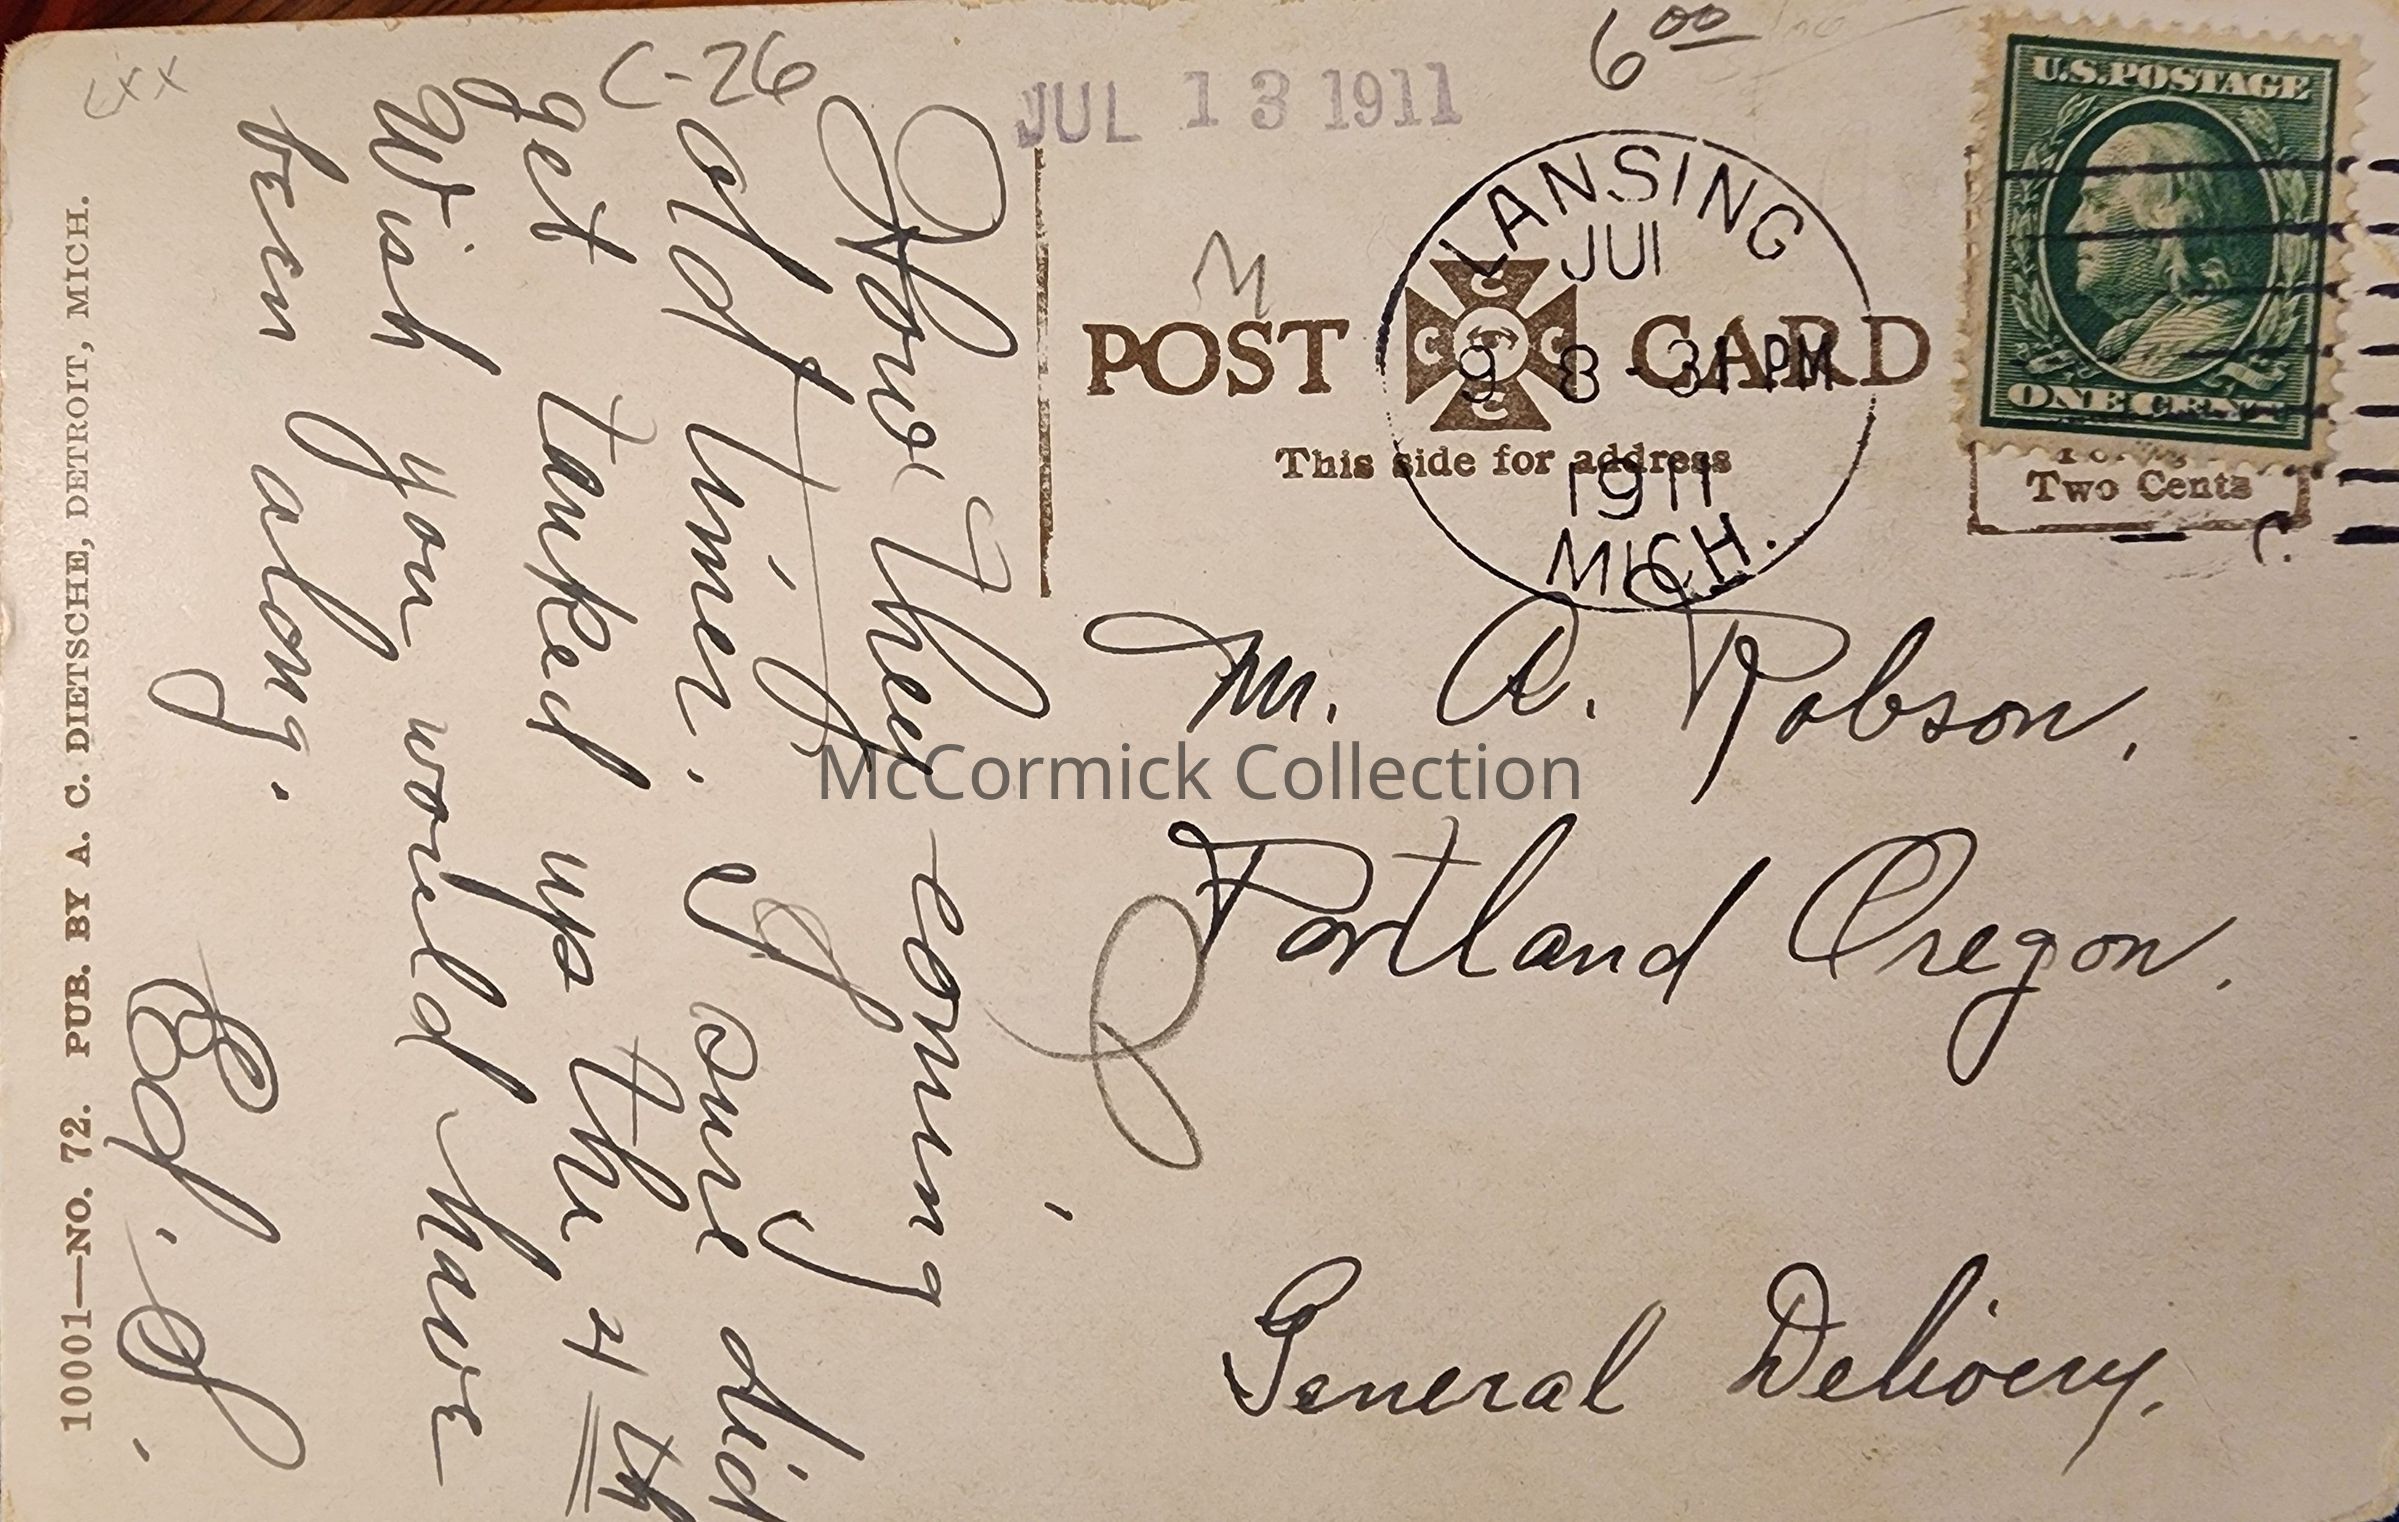 6 00
C-26
JUL 13 1911
U.S. POSTAGE
ONE CENT
LANSING
JUL
9 8-31 PM
1911
MICH.
M
POST CARD
C C C C
This side for address
Two Cents
How they coming
old timer. I sure did
get tanked up the 4th
Wish you would have
been along.
Ed. S.
M. A. Robson,
Portland Oregon.
General Delivery.
10001—NO. 72. PUB. BY A. C. DIETSCHE, DETROIT, MICH.
McCormick Collection